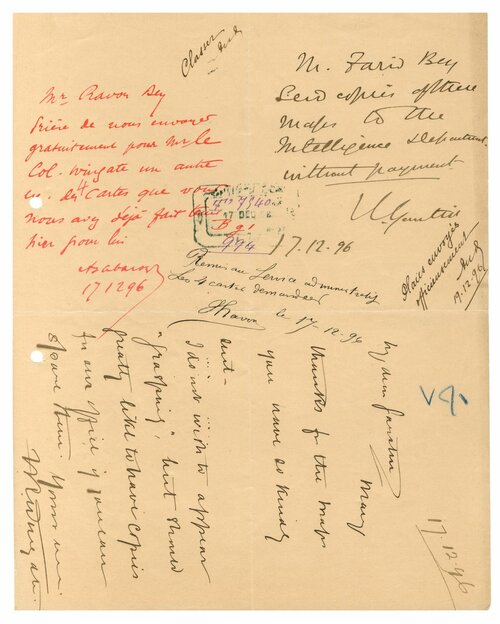 Classer
M. Farid Bey
Send copies of these
Maps to the
Intelligence Department
without payment
17-12-96
Mr Ravon Bey
Prière de nous envoyer
gratuitement pour Mr le
Col. Wingate un autre
ex. des 4 Cartes que vous
nous avez déjà fait
hier pour lui
17 12 96
17 DEC
7340
994
Plans envoyés
officieusement
17.12.96
Remis au Service administratif
Les 4 cartes demandées
Ravon le 17-12-96
17.12.96
My dear
Many
thanks for the maps
you have so kindly
sent -
I do not wish to appear
"grasping", but should
greatly like to have copies
in our office if you can
spare them. Yours